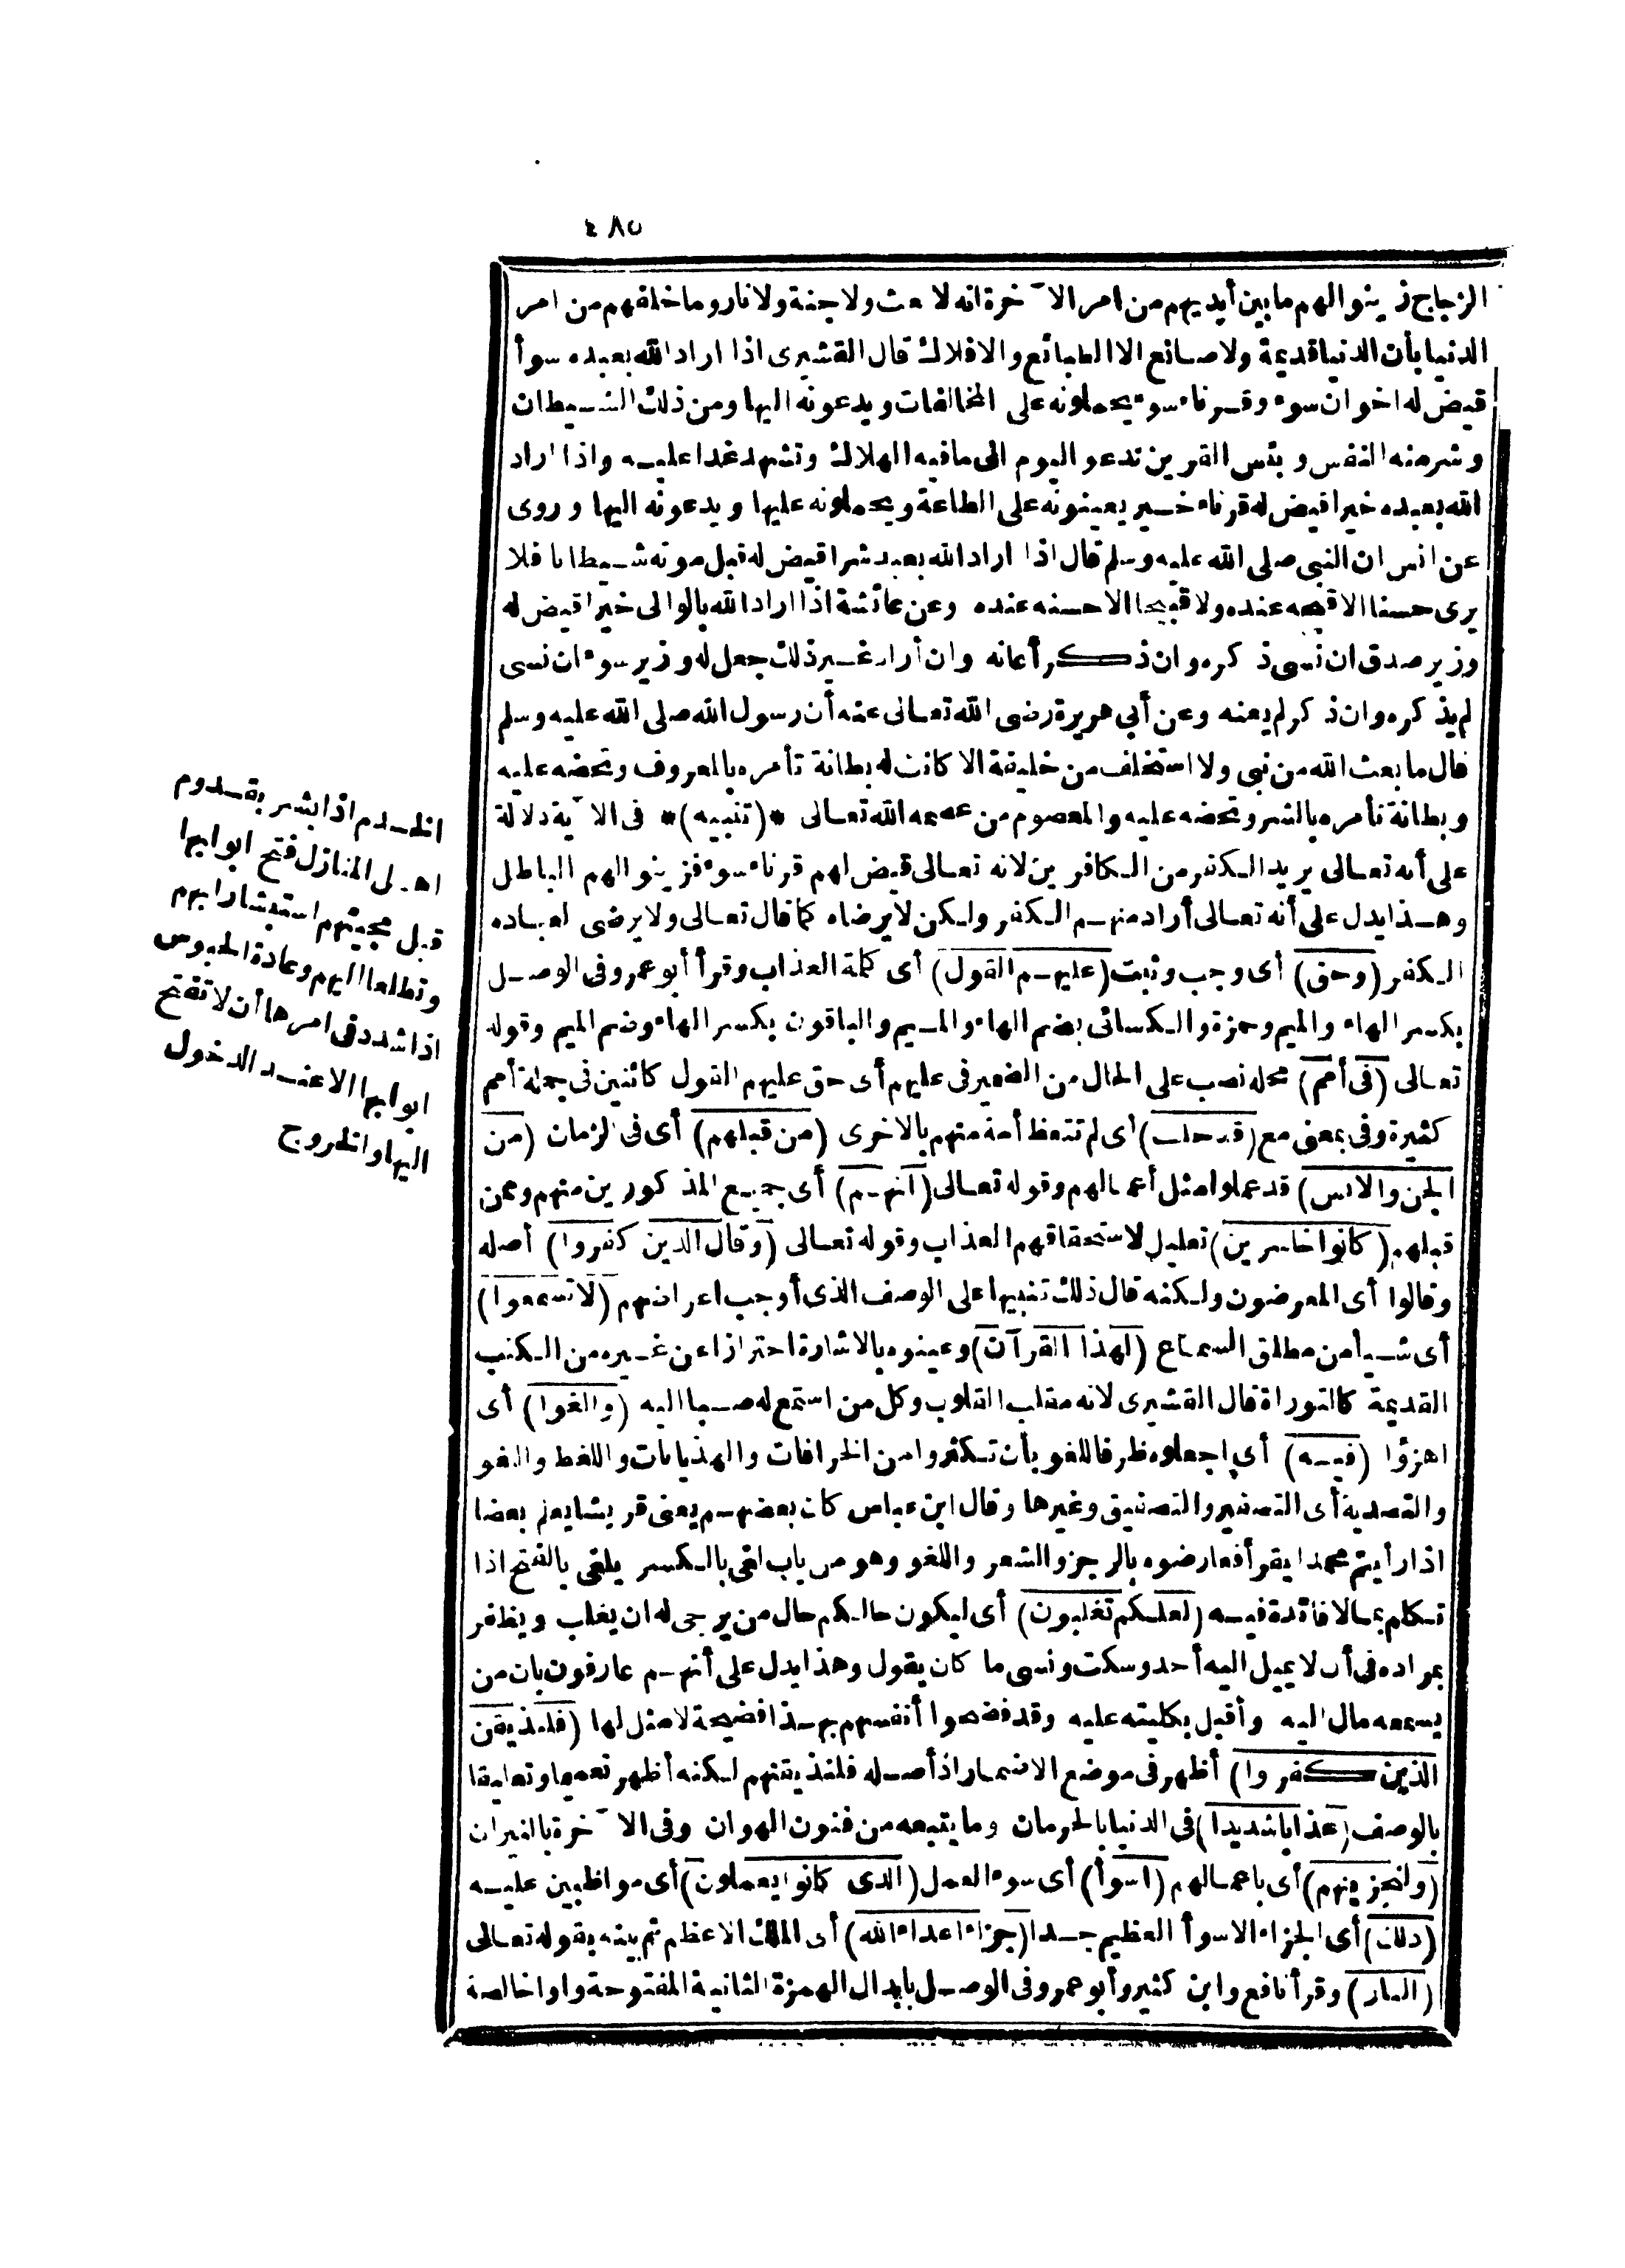 ٤٨٥
الزجاج زينوا لهم ما بين أيديهم من امر الآخرة انه لا بعث ولا جنة ولا نار وما خلفهم من امر
الدنيا بأن الدنيا قديمة ولا صانع الا الطبائع والافلاك قال القشيرى اذا اراد الله بعبده سوأ
قيض له اخوان سوء وقرناء سوء يحملونه على المخالفات ويدعونه اليها ومن ذلك الشيطان
وشر منه النفس وبئس القرين تدعو اليوم الى ما فيه الهلاك وتشهد غدا عليه واذا اراد
الله بعبده خيرا قيض له قرناء خير يعينونه على الطاعة ويحملونه عليها ويدعونه اليها وروى
عن انس ان النبى صلى الله عليه وسلم قال اذا اراد الله بعبد شرا قيض له قبل موته شيطانا فلا
يرى حسنا الا قبحه عنده ولا قبيحا الا حسنه عنده وعن عائشة اذا اراد الله بالوالى خيرا قيض له
وزير صدق ان نسى ذكره وان ذكر أعانه وان أراد غير ذلك جعل له وزير سوء ان نسى
لم يذكره وان ذكر لم يعنه وعن أبي هريرة رضى الله تعالى عنه أن رسول الله صلى الله عليه وسلم
قال ما بعث الله من نبى ولا استخلف من خليفة الا كانت له بطانة تأمره بالمعروف وتحضه عليه
وبطانة تأمره بالشر وتحضه عليه والمعصوم من عصمه الله تعالى *(تنبيه)* فى الآية دلالة
على أنه تعالى يريد الكفر من الكافرين لانه تعالى قيض لهم قرناء سوء فزينوا لهم الباطل
وهذا يدل على أنه تعالى أراد منهم الكفر ولكن لا يرضاه كما قال تعالى ولا يرضى لعباده
الكفر (وحق) أى وجب وثبت (عليهم القول) أى كلمة العذاب وقرأ أبو عمرو فى الوصل
بكسر الهاء والميم وحمزة والكسائى بضم الهاء والميم والباقون بكسر الهاء وضم الميم وقوله
تعالى (فى أمم) محله نصب على الحال من الضمير فى عليهم أى حق عليهم القول كائنين فى جملة أمم
كثيرة وفى بمعنى مع (قد خلت) أى لم تتعظ أمة منهم بالاخرى (من قبلهم) أى فى الزمان (من
الجن والانس) قد عملوا مثل أعمالهم وقوله تعالى (انهم) أى جميع المذكورين منهم وممن
قبلهم (كانوا خاسرين) تعليل لاستحقاقهم العذاب وقوله تعالى (وقال الذين كفروا) أصله
وقالوا أى المعرضون ولكنه قال ذلك تنبيها على الوصف الذى أوجب اعراضهم (لا تسمعوا)
أى شيأ من مطلق السماع (لهذا القرآن) وعينوه بالاشارة احترازا عن غيره من الكتب
القديمة كالتوراة قال القشيرى لانه مقلب القلوب وكل من استمع له صبا اليه (والغوا) أى
اهزؤا (فيه) أى اجعلوه ظرفا للغو بأن تكثروا من الخرافات والهذيانات واللغط واللغو
والتصدية أى التصفير والتصفيق وغيرها وقال ابن عباس كان بعضهم يعنى قريشا يعلم بعضا
اذا رأيتم محمدا يقرأ فعارضوه بالرجز والشعر واللغو وهو من باب لغى بالكسر يلغى بالفتح اذا
تكلم بما لا فائدة فيه (لعلكم تغلبون) أى ليكون حالكم حال من يرجى له ان يغلب ويظفر
بمراده فى أن لا يميل اليه أحد وسكت ونسى ما كان يقول وهذا يدل على أنهم عارفون بان من
يسمعه مال اليه وأقبل بكليته عليه وقد فضحوا أنفسهم بهذا فضيحة لا مثل لها (فلنذيقن
الذين كفروا) أظهر فى موضع الاضمار اذ أصله فلنذيقنهم لكنه أظهر تعميما وتعليقا
بالوصف (عذابا شديدا) فى الدنيا بالحرمان وما يتبعه من فنون الهوان وفى الآخرة بالنيران
(ولنجزينهم) أى باعمالهم (اسوأ) أى سوء العمل (الذى كانوا يعملون) أى مواظبين عليه
(ذلك) أى الجزاء الاسوأ العظيم جدا (جزاء اعداء الله) أى الملك الاعظم ثم بينه بقوله تعالى
(النار) وقرأ نافع وابن كثير وأبو عمرو فى الوصل بابدال الهمزة الثانية المفتوحة واوا خالصة
الخدم اذا بشر بقدوم
اهل المنازل فتح ابوابها
قبل مجيئهم استبشارا بهم
وتطلعا اليهم وعادة الحبوس
اذا شدد فى امرها أن لا تفتح
ابوابها الا عند الدخول
اليها والخروج